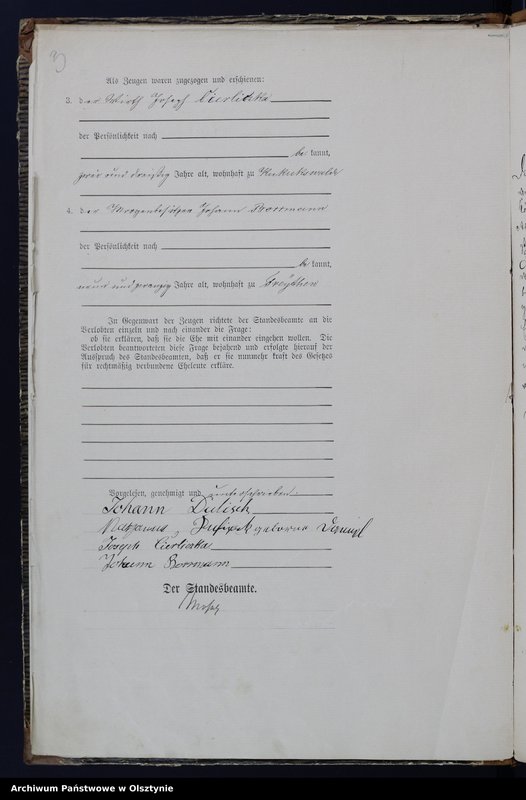 3
Als Zeugen waren zugezogen und erschienen:
3. der Wirth Joseph Cierlitzka
der Persönlichkeit nach
be kannt,
zwei und dreißig Jahre alt, wohnhaft zu Kukukswalde
4. der Morgenbesitzer Johann Borrmann
der Persönlichkeit nach
be kannt,
neun und zwanzig Jahre alt, wohnhaft zu Froythen
In Gegenwart der Zeugen richtete der Standesbeamte an die
Verlobten einzeln und nach einander die Frage:
ob sie erklären, daß sie die Ehe mit einander eingehen wollen. Die
Verlobten beantworteten diese Frage bejahend und erfolgte hierauf der
Ausspruch des Standesbeamten, daß er sie nunmehr kraft des Gesetzes
für rechtmäßig verbundene Eheleute erkläre.
Vorgelesen, genehmigt und unterschrieben.
Johann Dulisch
geborne
Joseph Cierlitzka
Johann Borrmann
Der Standesbeamte.
Archiwum Państwowe w Olsztynie